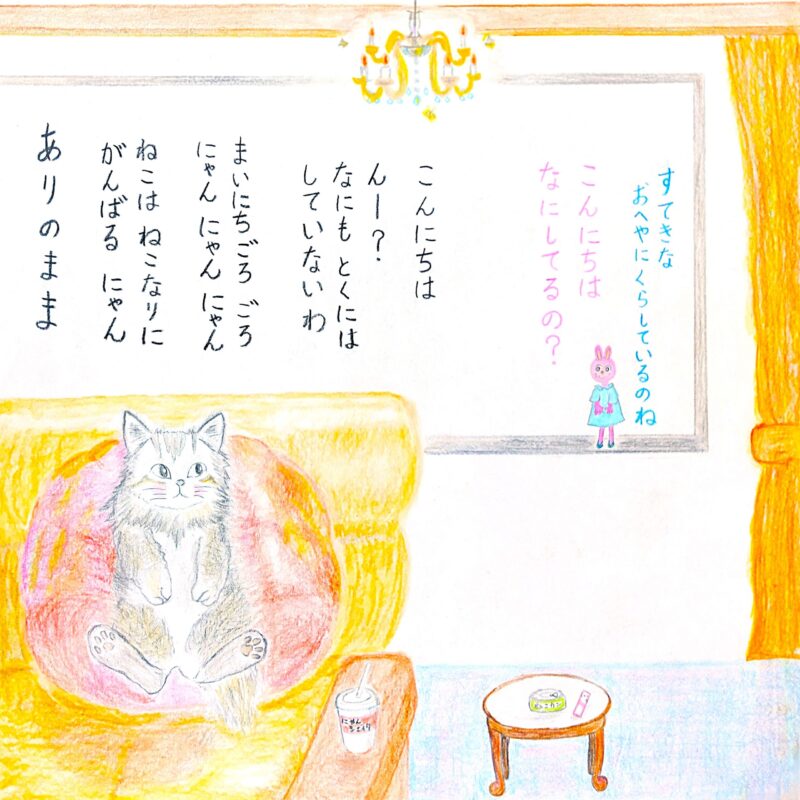 すてきな
おへやにくらしているのね
こんにちは
なにしてるの?
こんにちは
んー?
なにも とくには
していないわ
まいにち ごろ ごろ
にゃん にゃん にゃん
ねこは ねこなりに
がんばる にゃん
ありのまま
にゃん
シェイク